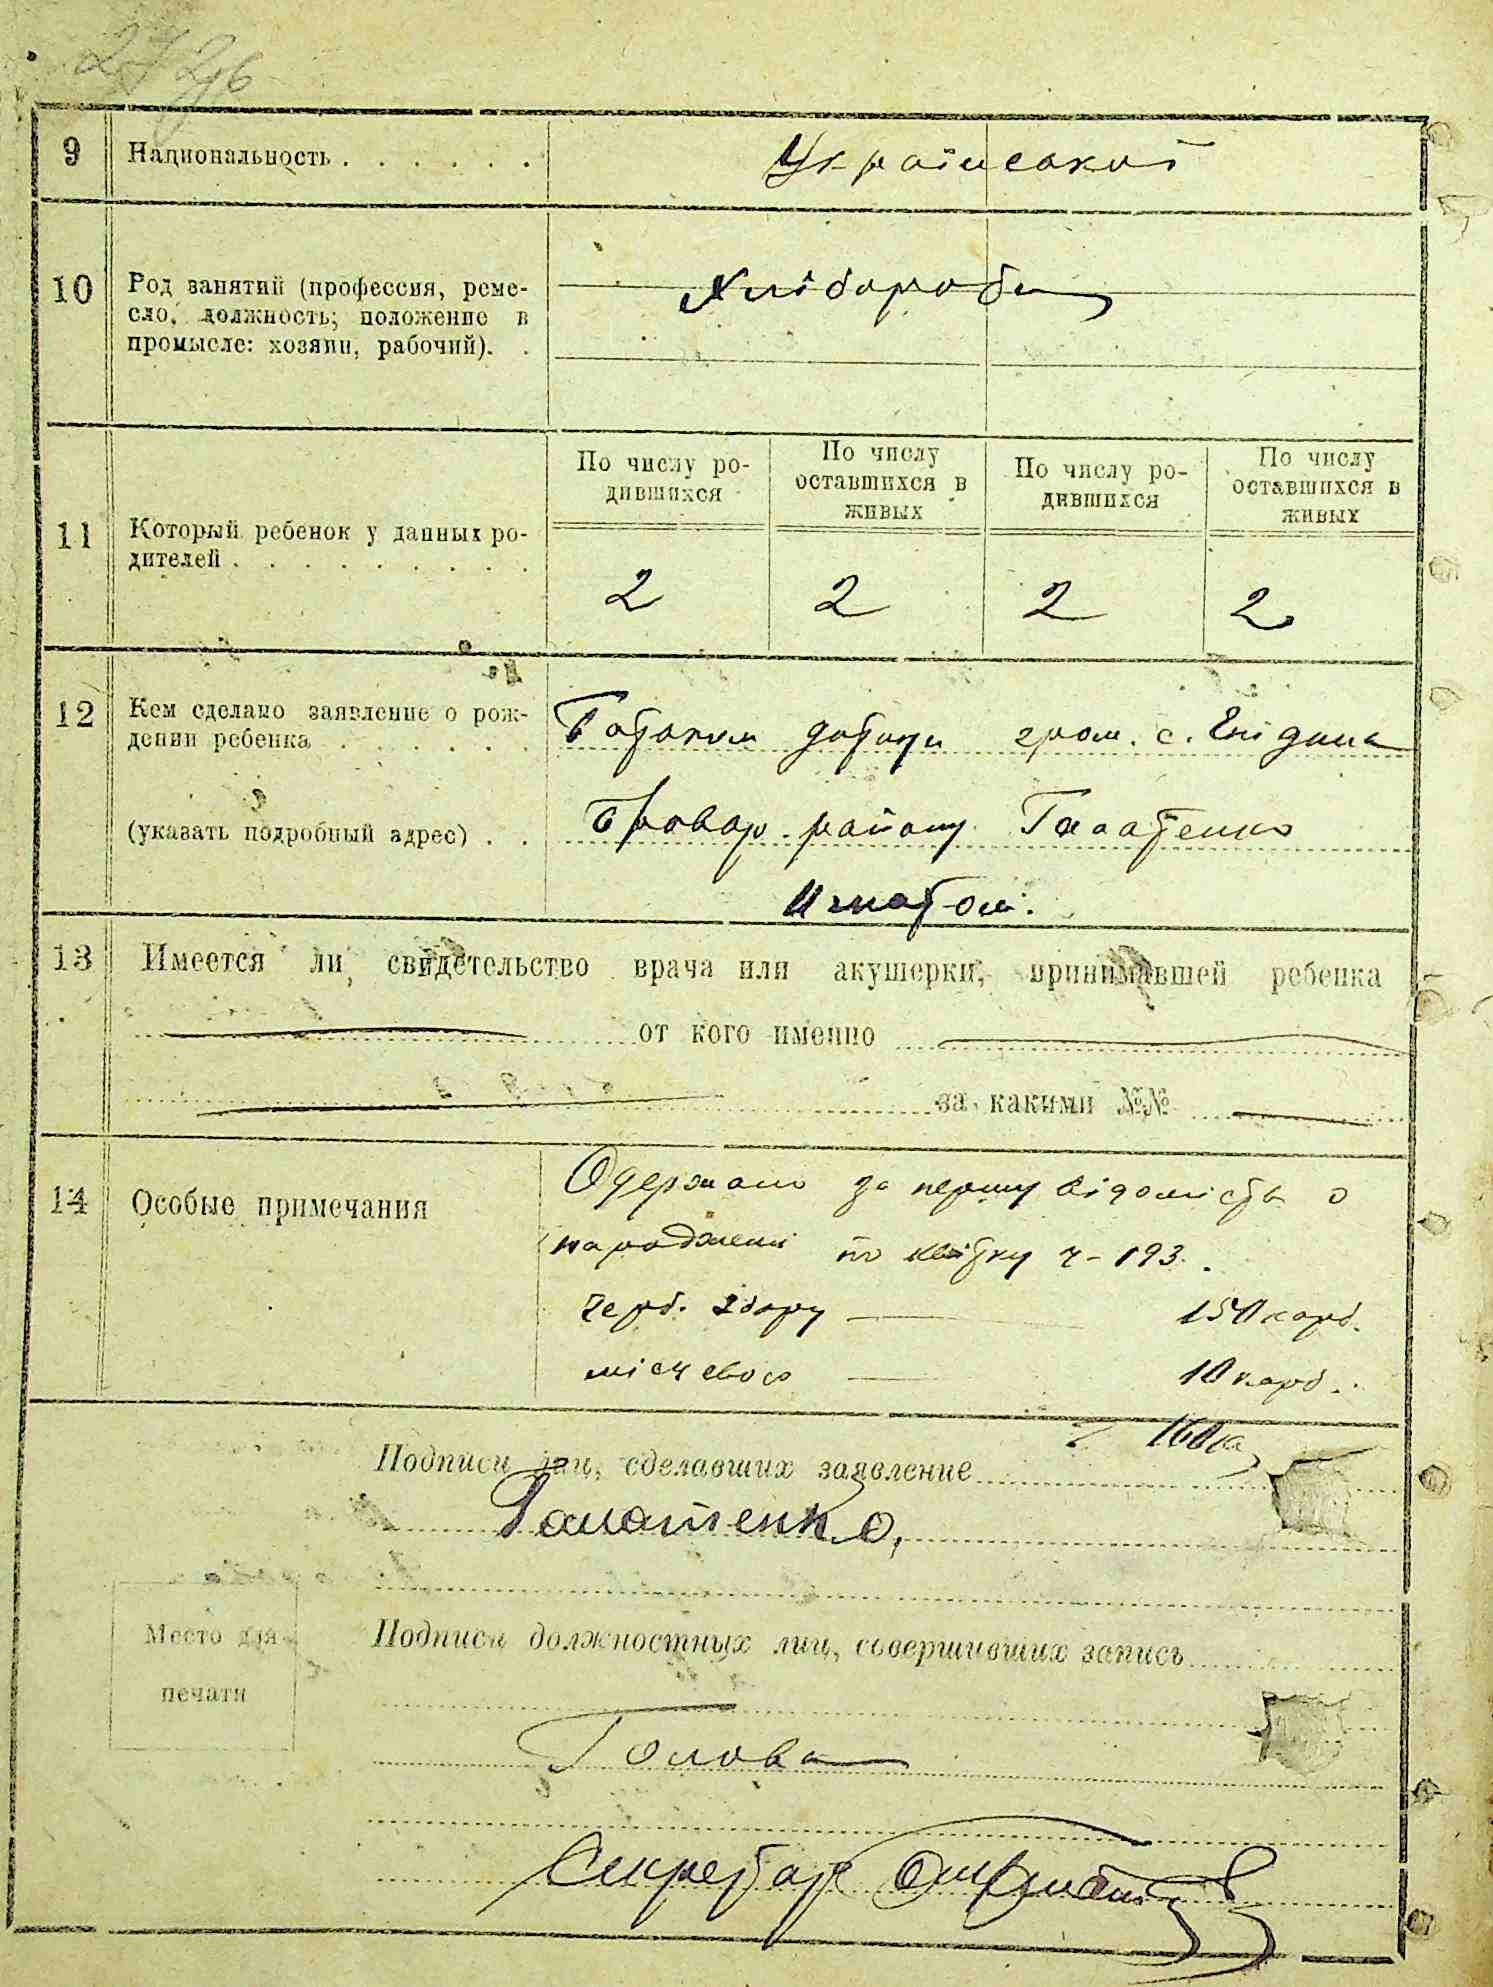 9 Национальность . . . . . . Української
10 Род занятий (профессия, реме-
сло, должность; положение в
промысле: хозяин, рабочий). .
Хлібороби
По числу ро-
дившихся
По числу
оставшихся в
живых
По числу ро-
дившихся
По числу
оставшихся в
живых
11 Который ребенок у данных ро-
дителей . . . . . . . . .
2 2 2 2
12 Кем сделано заявление о рож-
дении ребенка . . . . . .
(указать подробный адрес) . .
Батьком дитини гром. с.
Бровар. району
Игнатом.
13 Имеется ли свидетельство врача или акушерки, принимавшей ребенка
от кого именно
за какими №№
14 Особые примечания
Одержано за першу відомість о
народженні по квітку ч-193.
герб. збору 150 карб.
місчевого 10 карб.
160 к
Подписи лиц, сделавших заявление
Галатенко,
Место для
печати
Подписи должностных лиц, совершивших запись
Голова
Секретарь